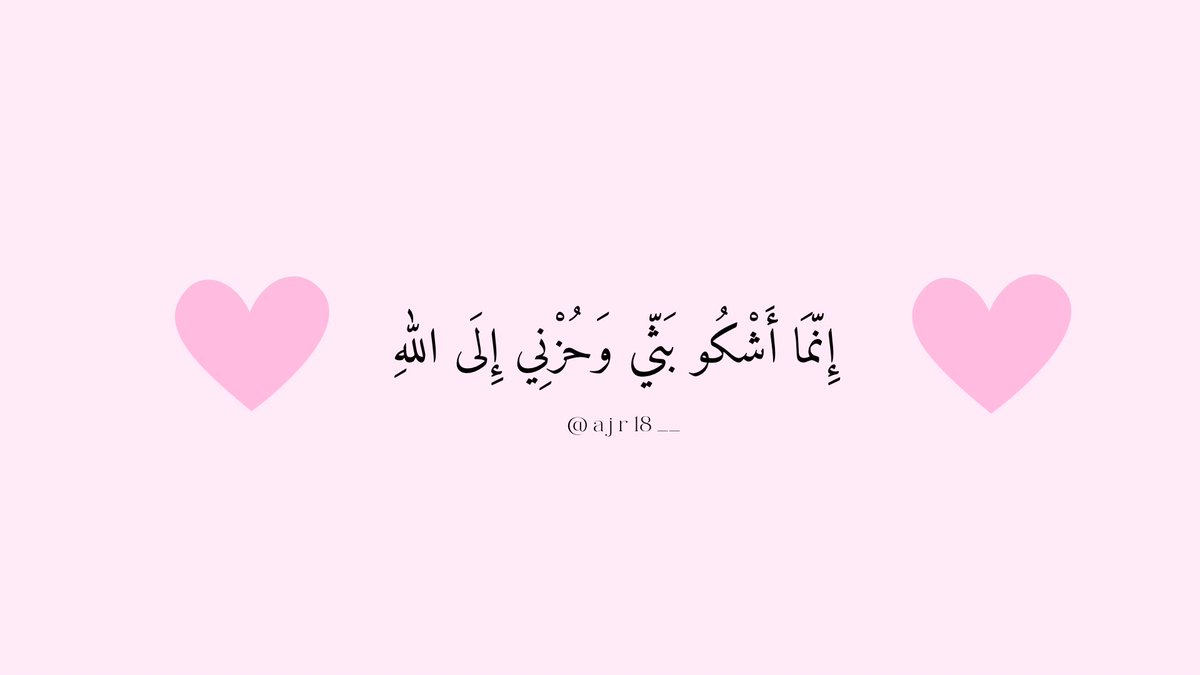 إِنَّمَا أَشْكُو بَثِّي وَحُزْنِي إِلَى اللهِ
@ajr18__